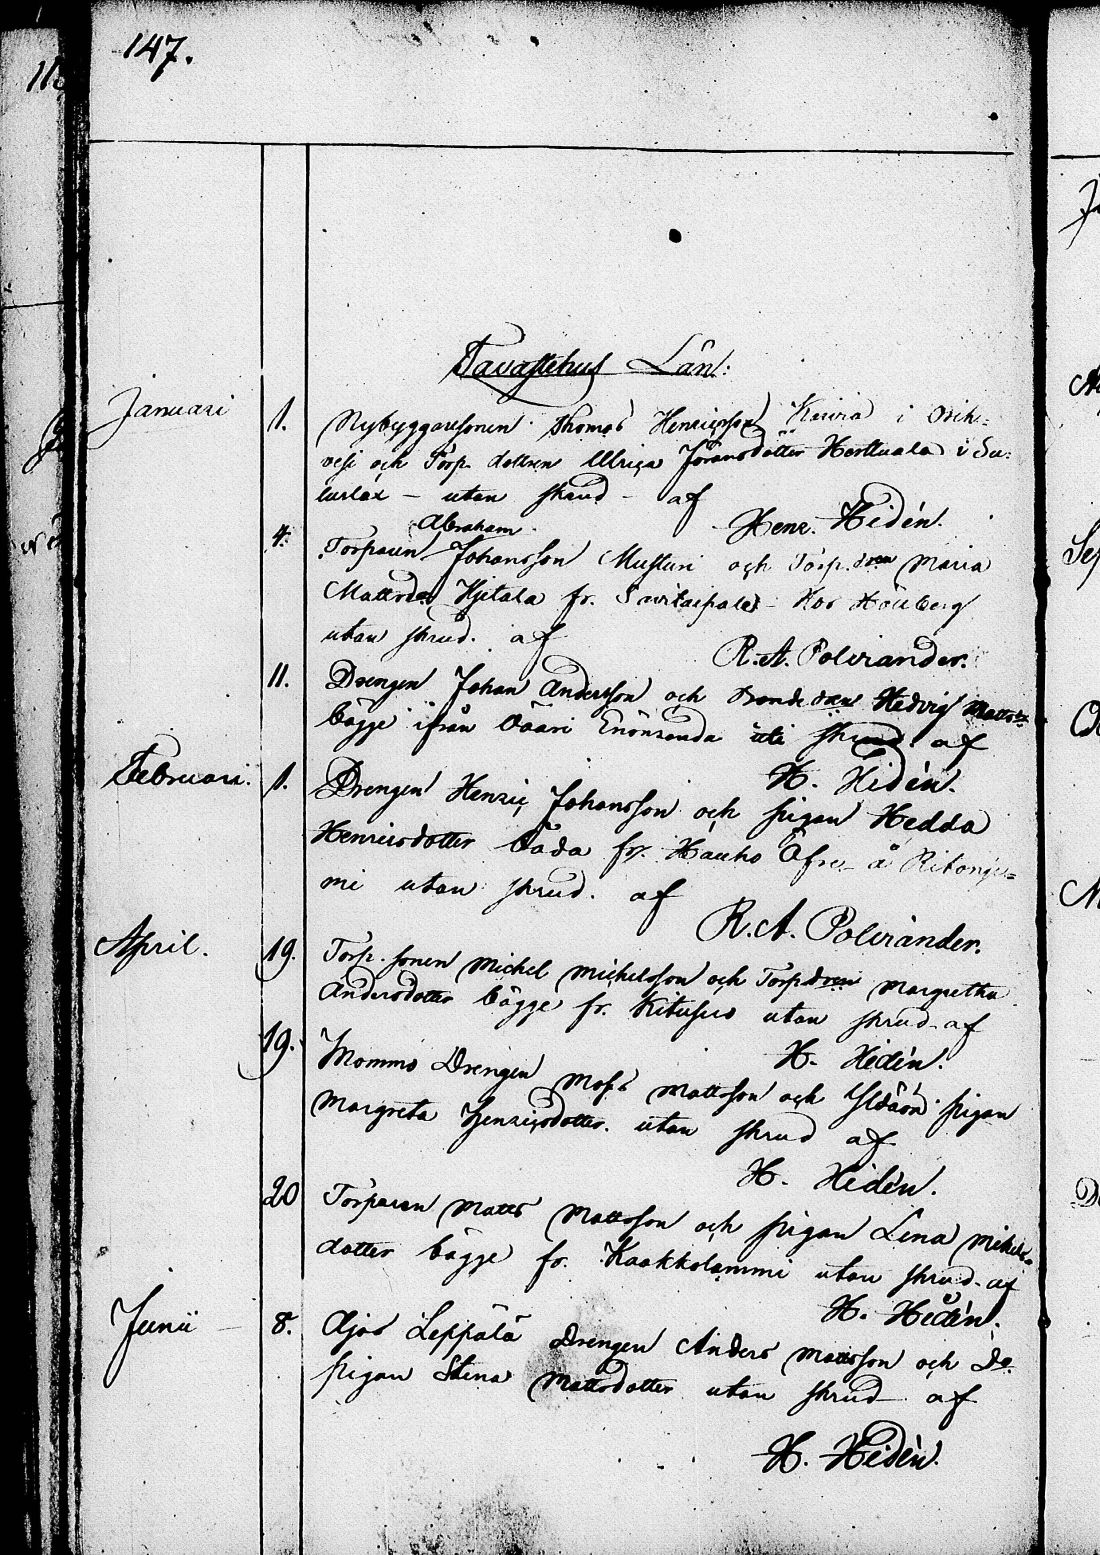 147.
Tavastehus Län:
Januari 1. Nybyggaresonen Thomas Henricsson Kuiria i Osik=
vesi och Torp. dottren Ulrica Göransdotter Herttuala i Su:
lurlax – utan skrud – af
Henr. Hidén.
Abraham
4. Torparen Johansson Musturi och Torp. dren Maria
Mattsdr Hjitala fr. Savitaipale – Hos Hällberg
utan skrud. af
R. A. Polviander.
11. Drengen Johan Andersson och Bonde dren Hedvig Mattsdr
bägge ifrån Enonranda uti skrud af
H. Hidén.
Februari. 1. Drengen Henric Johansson och pigan Hedda
Henricsdotter båda fr. Hauho Öfre å
mi utan skrud. af
R. A. Polviander.
April. 19. Torp. sonen Michel Michelsson och Torpdren Margretha
Andersdotter bägge fr. Kitusuo utan skrud af
H. Hidén.
19. Mommo Drengen Mats Mattsson och pigan
Margreta Henricsdotter. utan skrud af
H. Hidén.
20 Torparen Matts Mattsson och pigan Lena Mikels
dotter bägge fr. Kaakkolammi utan skrud. af
H. Hidén.
Junii 8. Ajos Leppälä Drengen Anders Mattsson och Do
pigan Stina Mattsdotter utan skrud af
H. Hidén.